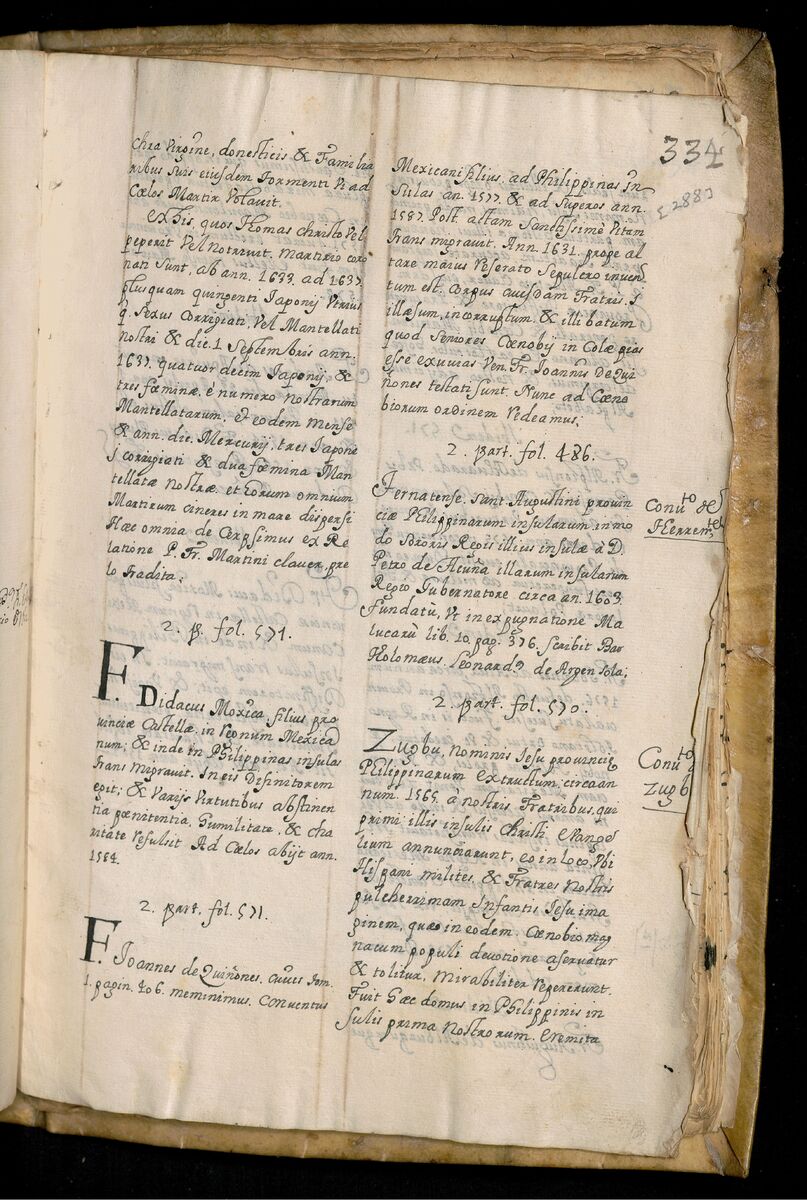 334
[288]
chia Virgine, donesticis & Familia
ribus suis eiusdem tormenti vi ad
Cœlos Martir Volavit.
ex his, quos Thomas christo Vel
peperit Vel nutrivit. Martirio coro
nati sunt, ab ann. 1633. ad 1637.
plusquam quingenti Iaponij Vtrius
q. sexus Corrigiati, Vel Mantellati
nostri & die. 1 Septembris ann.
1637. quatuor decim Iaponij, &
tres fœminæ, è numero nostrarum
Mantellatarum. Et eodem mense
& ann. die. Mercurij, tres Iapone
j corrigiati & dua fœmina Man
tellatæ nostræ. et horum omnium
Martirum cineres in mare dispersi
Hæc omnia de Cerpsimus ex Re
latione P. Fr. Martini claver, pre
lo tradita;
2. p. fol. 571.
F. Didacus Moxica, filius pro
vinciæ Castellæ. in regnum Mexica
num; & inde in Philippinas insulas
trans migravit. In eis Definitorem
egit; & varijs Virtutibus abstinen
tia pœnitentia, humilitate, & cha
ritate refulsit Ad Cœlos abijt ann.
1584.
2. part. fol. 571.
F. Ioannes de Quiñones. cuius tom.
1. pagin. 406. meminimus. Conventus
Mexicani filius, ad Philippinas In
sulas an. 1577. & ad superos ann.
1587. Post actam Sanctissimè Vitam
trans migravit. Ann. 1631. prope al
tare maius reserato sepulcro inven
tum est. Corpus cuiusdam Fratris.
illæsum, incorruptum. & illi batum
quod seniores Cœnobij in Colæ pias
esse exuvias Ven. Fr. Ioannis De Qui
ñones testati sunt. Nunc ad Cœno
biorum ordinem Redeamus;
2. part. fol. 486.
Ternatense. Sant. Augustini provin
ciæ Philippinarum insularum in mo
do Prioris Regis illius insulæ à D.
Petro de Acuña illarum insularum
Regio Gubernatore circa an. 1603.
fundatũ, Vt in expugnatione Ma
lucarũ lib. 10. pag. 376. scribit Bar
tholomæus. Leonard9 de Argensola;
Conuto
Herren
2. part. fol. 570.
Zugbu, nominis Iesu provinciæ
Philippinarum extructum, circa an
num. 1565. à nostris Fratribus, qui
primi illis insulis Christi evange
lium annunciarunt, eo in loco, Vbi
Hispani milites, & Fratres nostri
pulcherrimam Infantis Iesu ima
ginem, quæ in eodem. Cœnobio mag
na cum populi devotione aservatur
& colitur, mirabiliter repererunt.
Fuit hæc domus in Philippinis in
sulis prima nostrorum. eremita
Conuto
Zugb